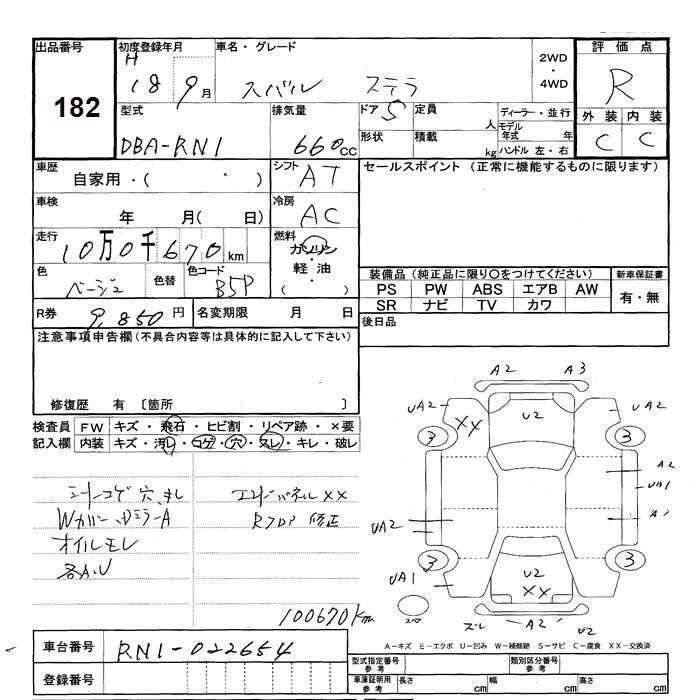 出品番号
182
初度登録年月
H
18 9月
車名・グレード
スバル ステラ
2WD
・
4WD
評価点
R
外装 内装
C C
型式
DBA-RN1
排気量
660cc
ドア 5
定員
人
形状
積載
kg
ディーラー・並行
モデル
年式 年
ハンドル 左・右
車歴
自家用・( ・ )
シフト
AT
セールスポイント (正常に機能するものに限ります)
車検
年 月( 日)
冷房
AC
走行
10万0千670km
燃料
ガソリン
・
軽油
( ・ )
色
ベージュ
色替
色コード
B5P
装備品 (純正品に限り〇をつけてください)
PS PW ABS エアB AW
SR ナビ TV カワ
新車保証書
有・無
R券
9,850円
名変期限 月 日
後日品
注意事項申告欄(不具合内容等は具体的に記入して下さい)
修復歴 有 〔箇所 〕
検査員
記入欄
FW キズ・飛石・ヒビ割・リペア跡・×要
内装 キズ・汚レ・コゲ・穴・スレ・キレ・破レ
シートコゲ穴、キレ
Wカバー、Dミラー A
オイルモレ
各A、U
エンドパネル XX
修正
100670Km
A2 A3
UA2 UA2
XX U2
3 3
A2
UA1
UA2 A1
3 3
UA1
U2
XX
スペ
スレ A2 U2
A-キズ E-エクボ U-凹み W-補修跡 S-サビ C-腐食 XX-交換済
車台番号
RN1-022654
登録番号
型式指定番号
参考
類別区分番号
参考
車庫証明用
参考
長さ cm
幅 cm
高さ cm